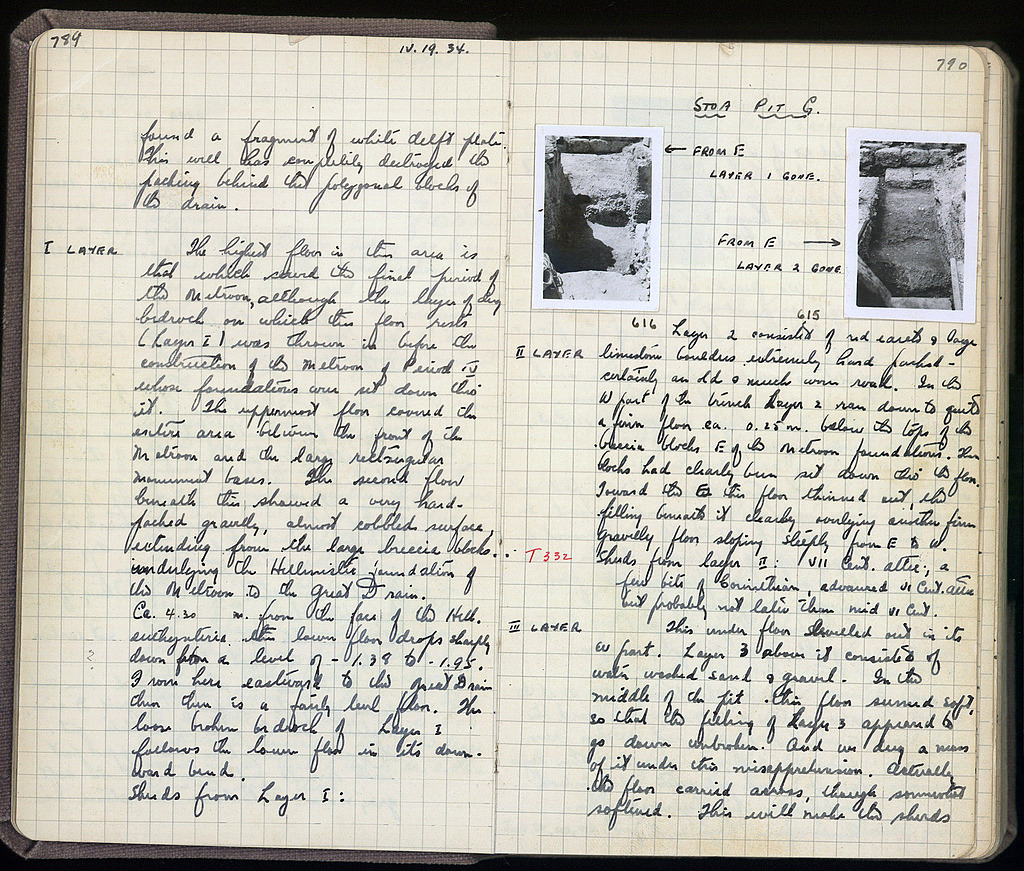 789
IV. 19. 34.
found a fragment of white delft plate.
This well has completely destroyed the
packing behind the polygonal blocks of
the drain.
I LAYER
The highest floor in this area is
that which served the final period of
the Metroon, although the layer of dug
bedrock on which this floor rests
(Layer I) was thrown in before the
construction of the Metroon of Period IV
whose foundations were set down thro
it. The uppermost floor covered the
entire area between the front of the
Metroon and the large rectangular
monument bases. The second floor
beneath this showed a very hard-
packed gravelly, almost cobbled surface,
extending from the large breccia blocks
underlying the Hellenistic foundation of
the Metroon to the Great Drain.
Ca. 4.30 m. from the face of the Hell.
euthynteria this lower floor drops sharply
down from a level of - 1.38 to - 1.95.
From here eastward to the great Drain
then there is a fairly level floor. The
loose broken bedrock of Layer I
follows the lower floor in its down-
ward bend.
Sherds from Layer I:
?
790
STOA PIT G.
← FROM E
LAYER 1 GONE.
FROM E →
LAYER 2 GONE
616
615
II LAYER
Layer 2 consisted of red earth & large
limestone boulders extremely hard packed -
certainly an old & much worn road. In the
W part of the trench Layer 2 ran down to quite
a firm floor ca. 0.25 m. below the tops of the
breccia blocks E of the Metroon foundations. These
blocks had clearly been set down thro the floor.
Toward the E this floor thinned out, the
filling beneath it clearly overlying another firm
gravelly floor sloping steeply from E to W.
T 332
Sherds from layer II: VII Cent. attic; a
few bits of Corinthian, advanced VI Cent. attic
but probably not later than mid VI Cent.
III LAYER
This under floor shelled out in its
W part. Layer 3 above it consisted of
water washed sand & gravel. In the
middle of the pit this floor seemed soft,
so that the filling of Layer 3 appeared to
go down unbroken. And we dug a mass
of it under this misapprehension. Actually
the floor carried across, though somewhat
softened. This will make the sherds